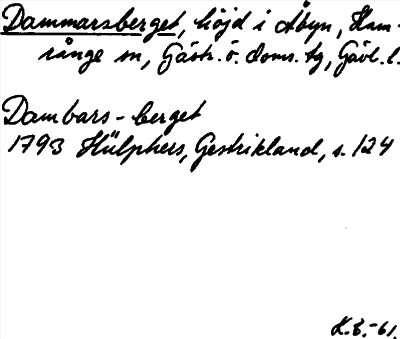 Dammarsberget, höjd i Åbyn, Ham-
rånge sn, Gästr. ö. doms. tg, Gävl. l.
Dambars-berget
1793 Hülphers, Gestrikland, s. 124
K.E.-61.